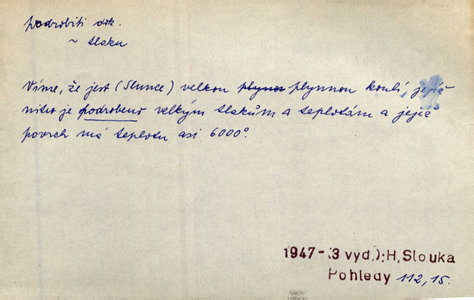 podrobiti dok.
~ tlaku
Víme, že jest (Slunce) velkou plynnou koulí, jejíž
nitro je podrobeno velkým tlakům a teplotám a jejíž
povrch má teplotu asi 6000°.
1947-(3 vyd.):H,Slouka
Pohledy 112, 15.